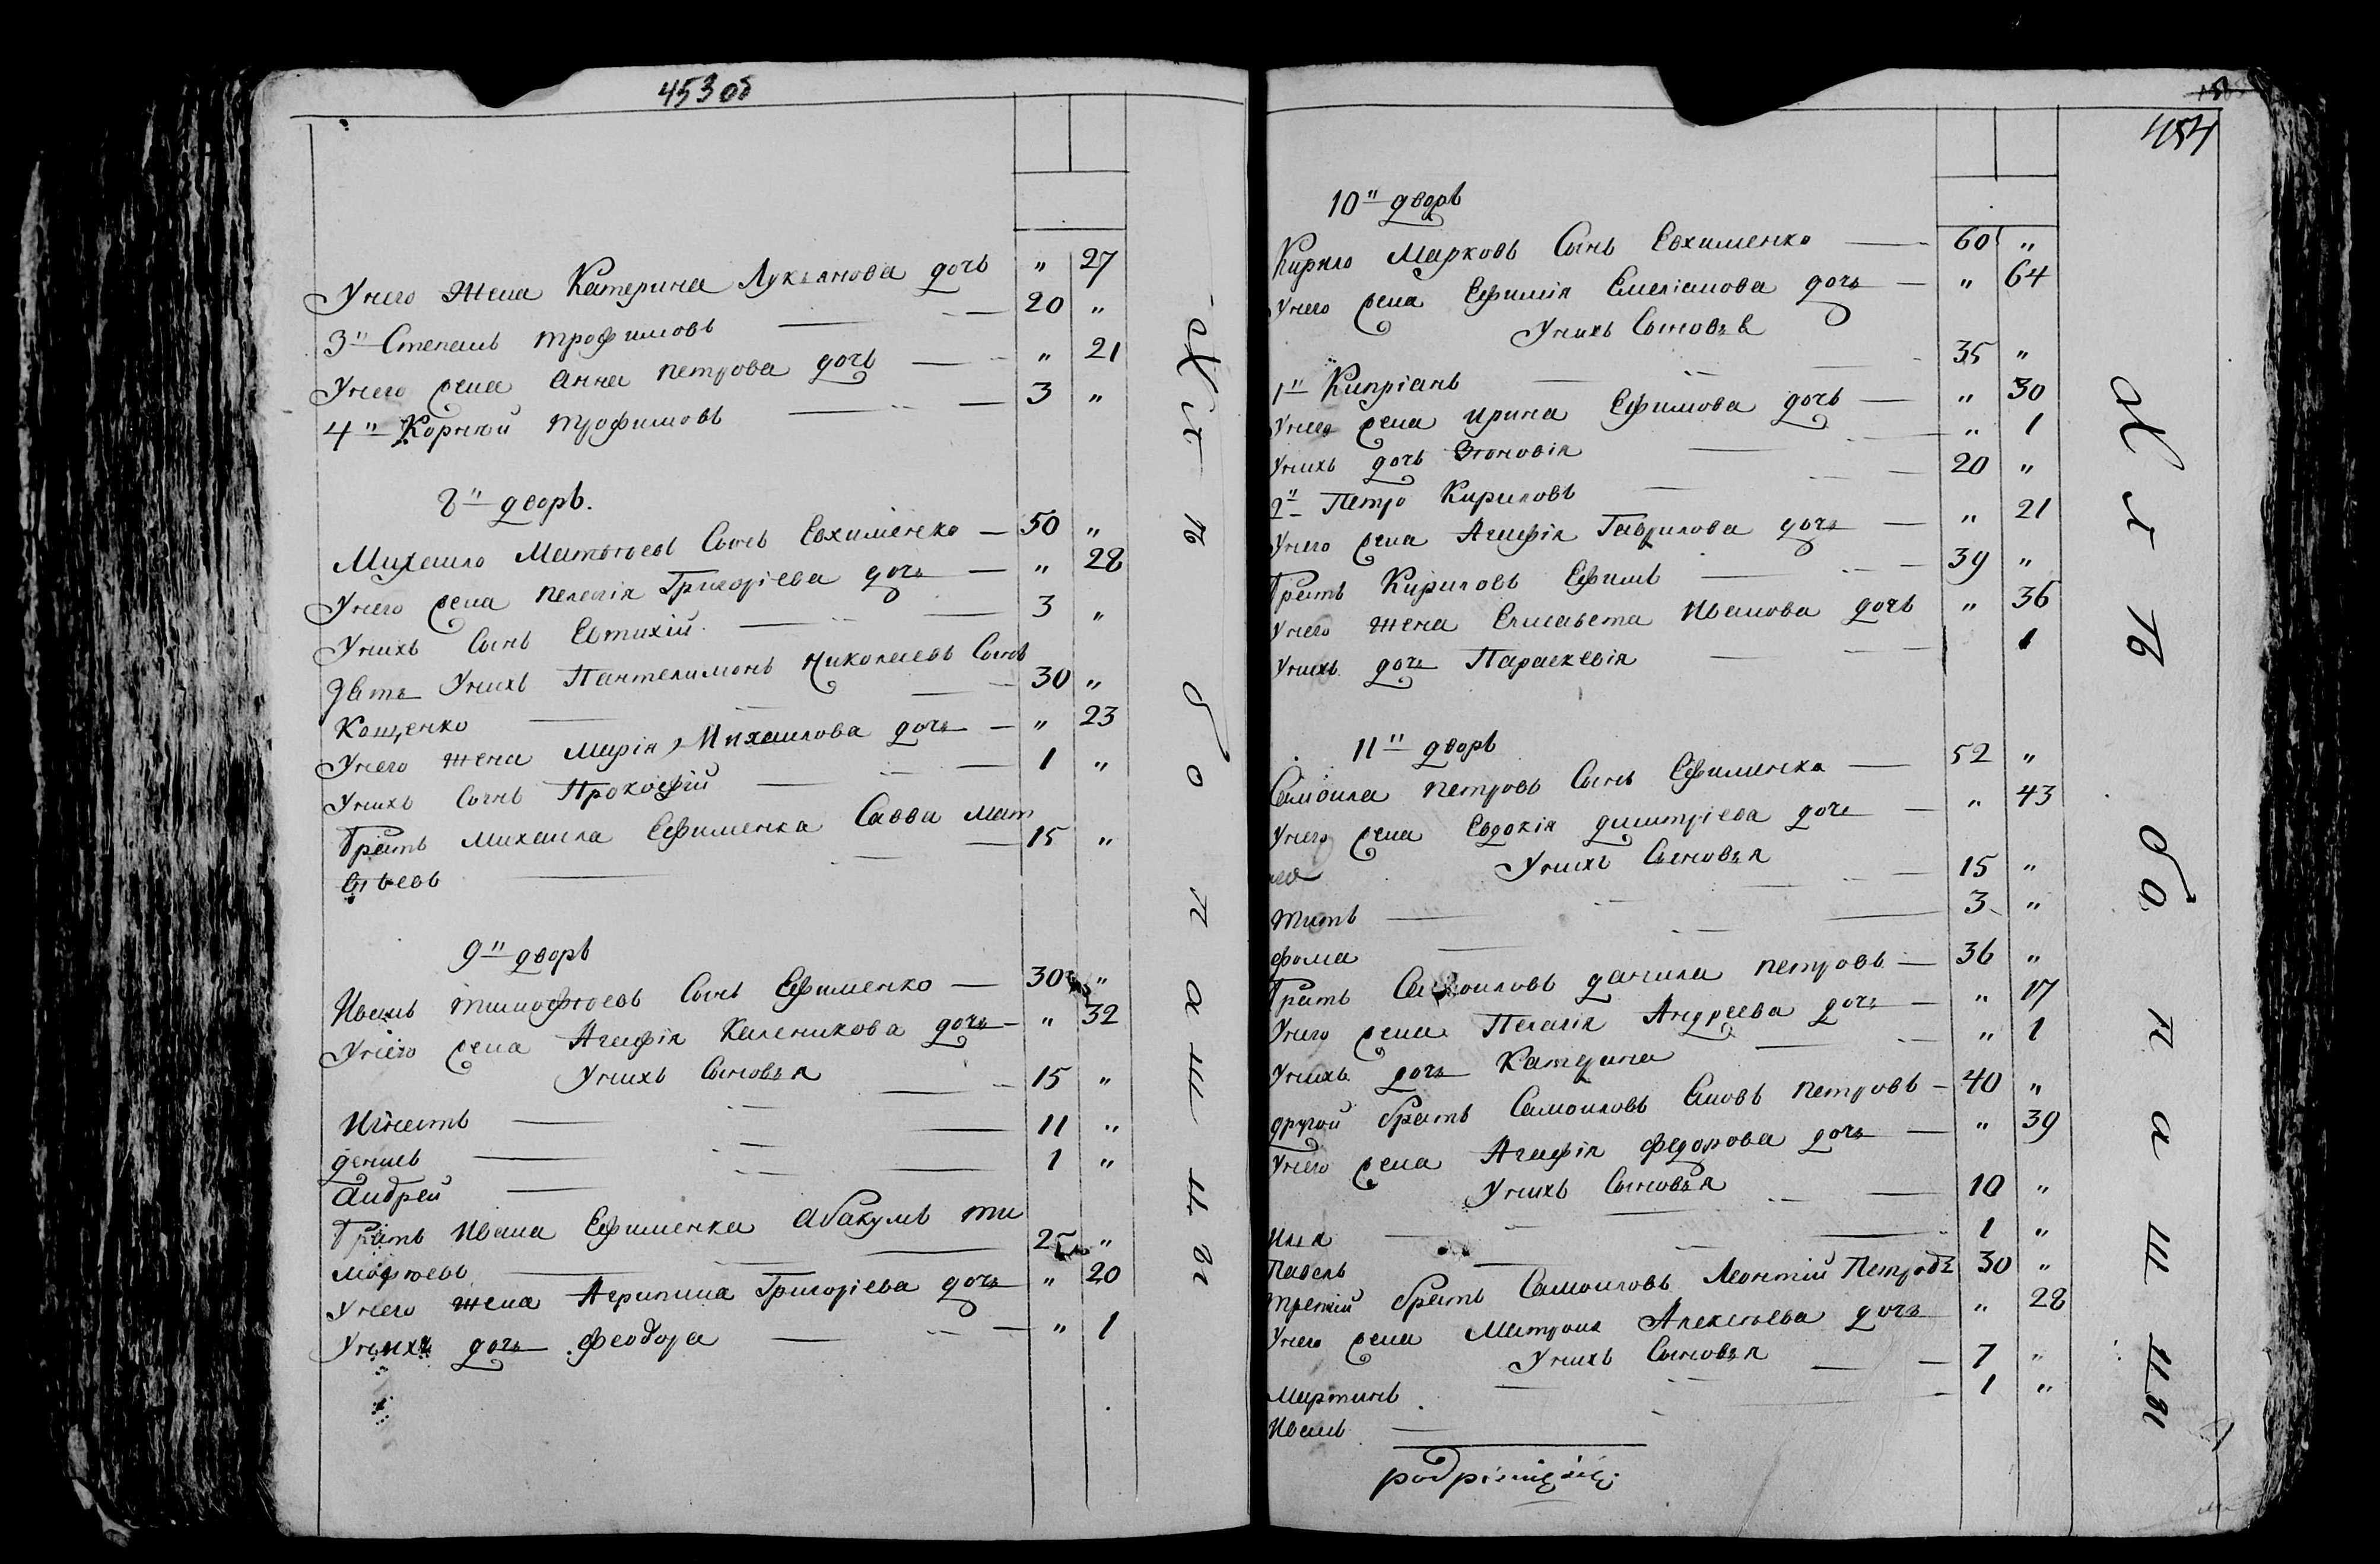 453 об
Унего Жена Катерина Лукьянова дочь " 27
3" Степанъ трофимовъ — 20 "
Унего жена анна петрова дочь — " 21
4" Корнѣй трофимовъ — 3 "
8" дворъ.
Михаило Матвѣевъ Сынъ Евхименко — 50 "
Унего жена пелагія Григоріева дочь — " 28
Унихъ Сынъ Евтихій — 3 "
Зять Унихъ Пантелимонъ николаевъ Сынъ
Кощенко — 30 "
Унего жена Марія Михаилова дочь — " 23
Унихъ Сынъ Прокофій — 1 "
Братъ михаила Ефименка Савва мат
вѣевъ — 15 "
9" дворъ
Иванъ тимофѣевъ Сынъ Ефименко — 30 "
Унего жена Агафія Каленикова дочь — " 32
Унихъ Сыновья
Игнатъ — 15 "
денисъ — 11 "
андрей — 1 "
Братъ Ивана Ефименка абакумъ ти
мофѣевъ — 25 "
Унего жена Агрипина Григоріева дочь " 20
Унихъ дочь феодора — " 1
Нѣтъ
оапшны
454
10" дворъ
Кирило Марковъ Сынъ Евхименко — 60 "
Унего жена Ефимія Емеліанова дочь — " 64
Унихъ Сыновья
1" Кипріанъ — 35 "
Унего жена ирина Ефимова дочь — " 30
Унихъ дочь Зѣновія — " 1
2" Петро Кириловъ — 20 "
Унего жена Агафія Гаврилова дочь — " 21
Братъ Кириловъ Ефимъ — 39 "
Унего жена Елисавета Иванова дочь " 36
Унихъ дочь Параскевія — 1
11" дворъ
Самоила петровъ Сынъ Ефименко — 52 "
Унего жена Евдокія димитріева дочь — " 43
Унихъ Сыновья
титъ — 15 "
фома — 3 "
Братъ Самоиловъ данила петровъ — 36 "
Унего жена Пелагія Андреева дочь — " 17
Унихъ дочь Катерина — " 1
другой братъ Самоиловъ петровъ — 40 "
Унего жена Агафія федорова дочь — " 39
Унихъ Сыновья
Илія — 10 "
Павелъ — 1 "
третій братъ Самоиловъ Леонтій Петровъ 30 "
Унего жена Матрона Алексѣева дочь " 28
Унихъ Сыновья
Мартинъ — 7 "
Иванъ — 1 "